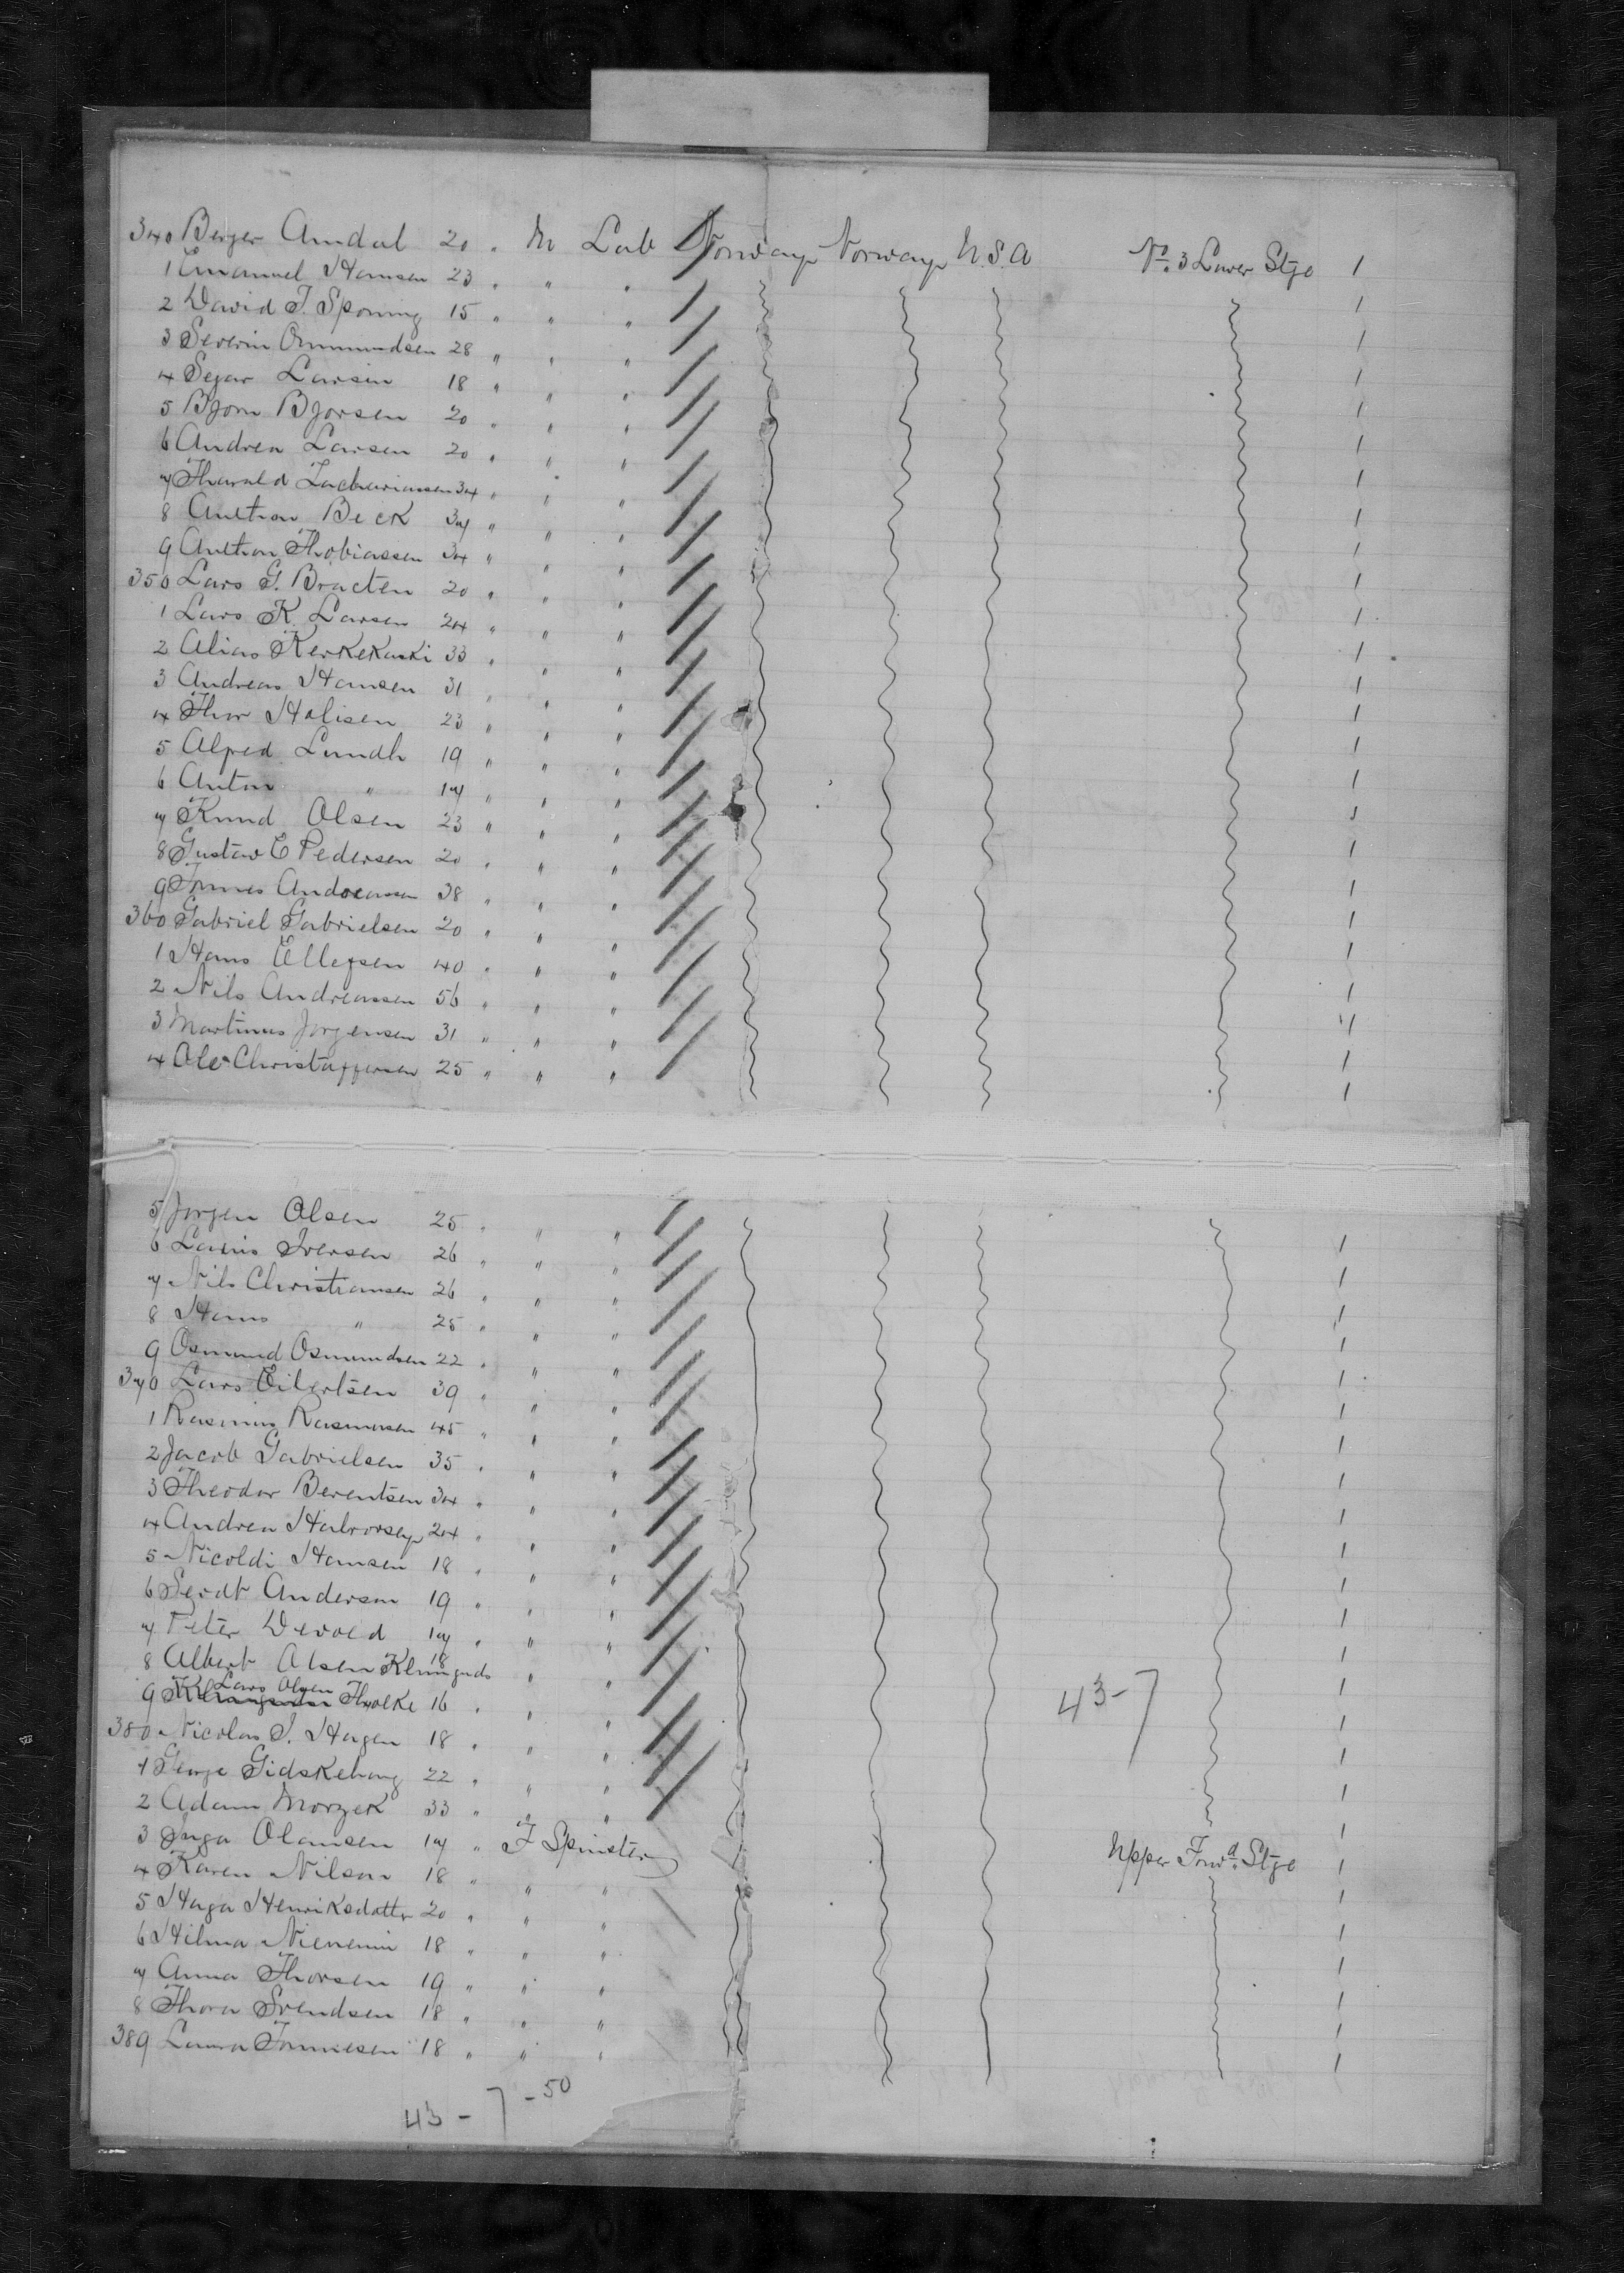 340 Berger Amdal 20 " M Lab Norway Norway U.S.A No. 3 Lower Stge 1
1 Emanuel Hansen 23 " " " 1
2 David T. Sponing 15 " " " 1
3 Severin Ommundsen 28 " " " 1
4 Segar Larsen 18 " " " 1
5 Bjorn Bjorsen 20 " " " 1
6 Andrea Larsen 20 " " " 1
7 Tharald Zachariassen 34 " " " 1
8 Anthon Beck 37 " " " 1
9 Anthon Thobiassen 34 " " " 1
350 Lars G. Bracten 20 " " " 1
1 Lars K. Larsen 24 " " " 1
2 Alias Kerkekaski 33 " " " 1
3 Andreas Hansen 31 " " " 1
4 Thor Halisen 23 " " " 1
5 Alfred Lundh 19 " " " 1
6 Anton " 17 " " " 1
7 Knud Olsen 23 " " " 1
8 Gustav E Pedersen 20 " " " 1
9 Tonnes Andreassen 38 " " " 1
360 Gabriel Gabrielsen 20 " " " 1
1 Hans Ellefsen 40 " " " 1
2 Nils Andreassen 56 " " " 1
3 Martinus Jorgensen 31 " " " 1
4 Ole Christoffersen 25 " " " 1
5 Jorgen Olsen 25 " " " 1
6 Lauris Iversen 26 " " " 1
7 Nils Christiansen 26 " " " 1
8 Hans " 25 " " " 1
9 Osmund Osmundsen 22 " " " 1
370 Lars Eilertsen 39 " " " 1
1 Rasmus Rasmussen 45 " " " 1
2 Jacob Gabrielsen 35 " " " 1
3 Theodor Berentsen 34 " " " 1
4 Andrea Halvorsen 24 " " " 1
5 Nicoldi Hansen 18 " " " 1
6 Gerdt Anderson 19 " " " 1
7 Peter Devold 17 " " " 1
8 Albert Olsen Klungnds 18 " " 1
9 Lars Olsen Thvolke 16 " " " 43-7 1
380 Nicolas J. Hagen 18 " " " 1
1 George Gidskehaug 22 " " " 1
2 Adam Morzek 33 " " " 1
3 Inga Olamsen 17 " F Spinster Upper Forwd. Stge 1
4 Karen Nilson 18 " " " 1
5 Haga Henriksdatter 20 " " " 1
6 Hilma 18 " " " 1
7 Anna Thorsen 19 " " " 1
8 Thora Svendsen 18 " " " 1
389 Laura Tonnesen 18 " " " 1
43-7-50